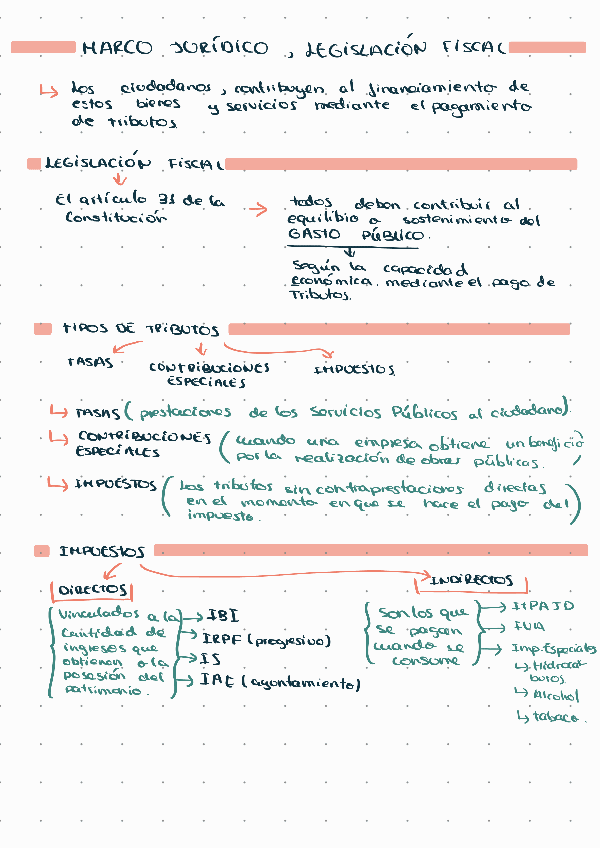 MARCO JURÍDICO, LEGISLACIÓN FISCAL
↳ Los ciudadanos, contribuyen al financiamiento de
estos bienes y servicios mediante el pagamiento
de tributos
LEGISLACIÓN FISCAL
El artículo 31 de la
Constitución
→ todos deben contribuir al
equilibio o sostenimiento del
GASTO PÚBLICO.
Según la capacidad
económica. mediante el pago de
Tributos.
TIPOS DE TRIBUTOS
TASAS
CONTRIBUCIONES
ESPECIALES
IMPUESTOS
↳ TASAS (prestaciones de los Servicios Públicos al ciudadano).
↳ CONTRIBUCIONES
ESPECIALES
(cuando una empresa obtiene un beneficio
por la realización de obras públicas. )
↳ IMPUESTOS (los tributos sin contraprestaciones directas
en el momento en que se hace el pago del
impuesto. )
IMPUESTOS
DIRECTOS
Vinculados a la
Cantidad de
ingresos que
obtienen o la
posesión del
patrimonio.
→ IBI
→ IRPF (progresivo)
→ IS
→ IAE (ayontamiento)
INDIRECTOS
Son los que
se pagan
cuando se
consume
→ ITPAJD
→ IVA
→ Imp. Especiales
↳ Hidrocar
buros
↳ Alcohol
↳ tabaco.